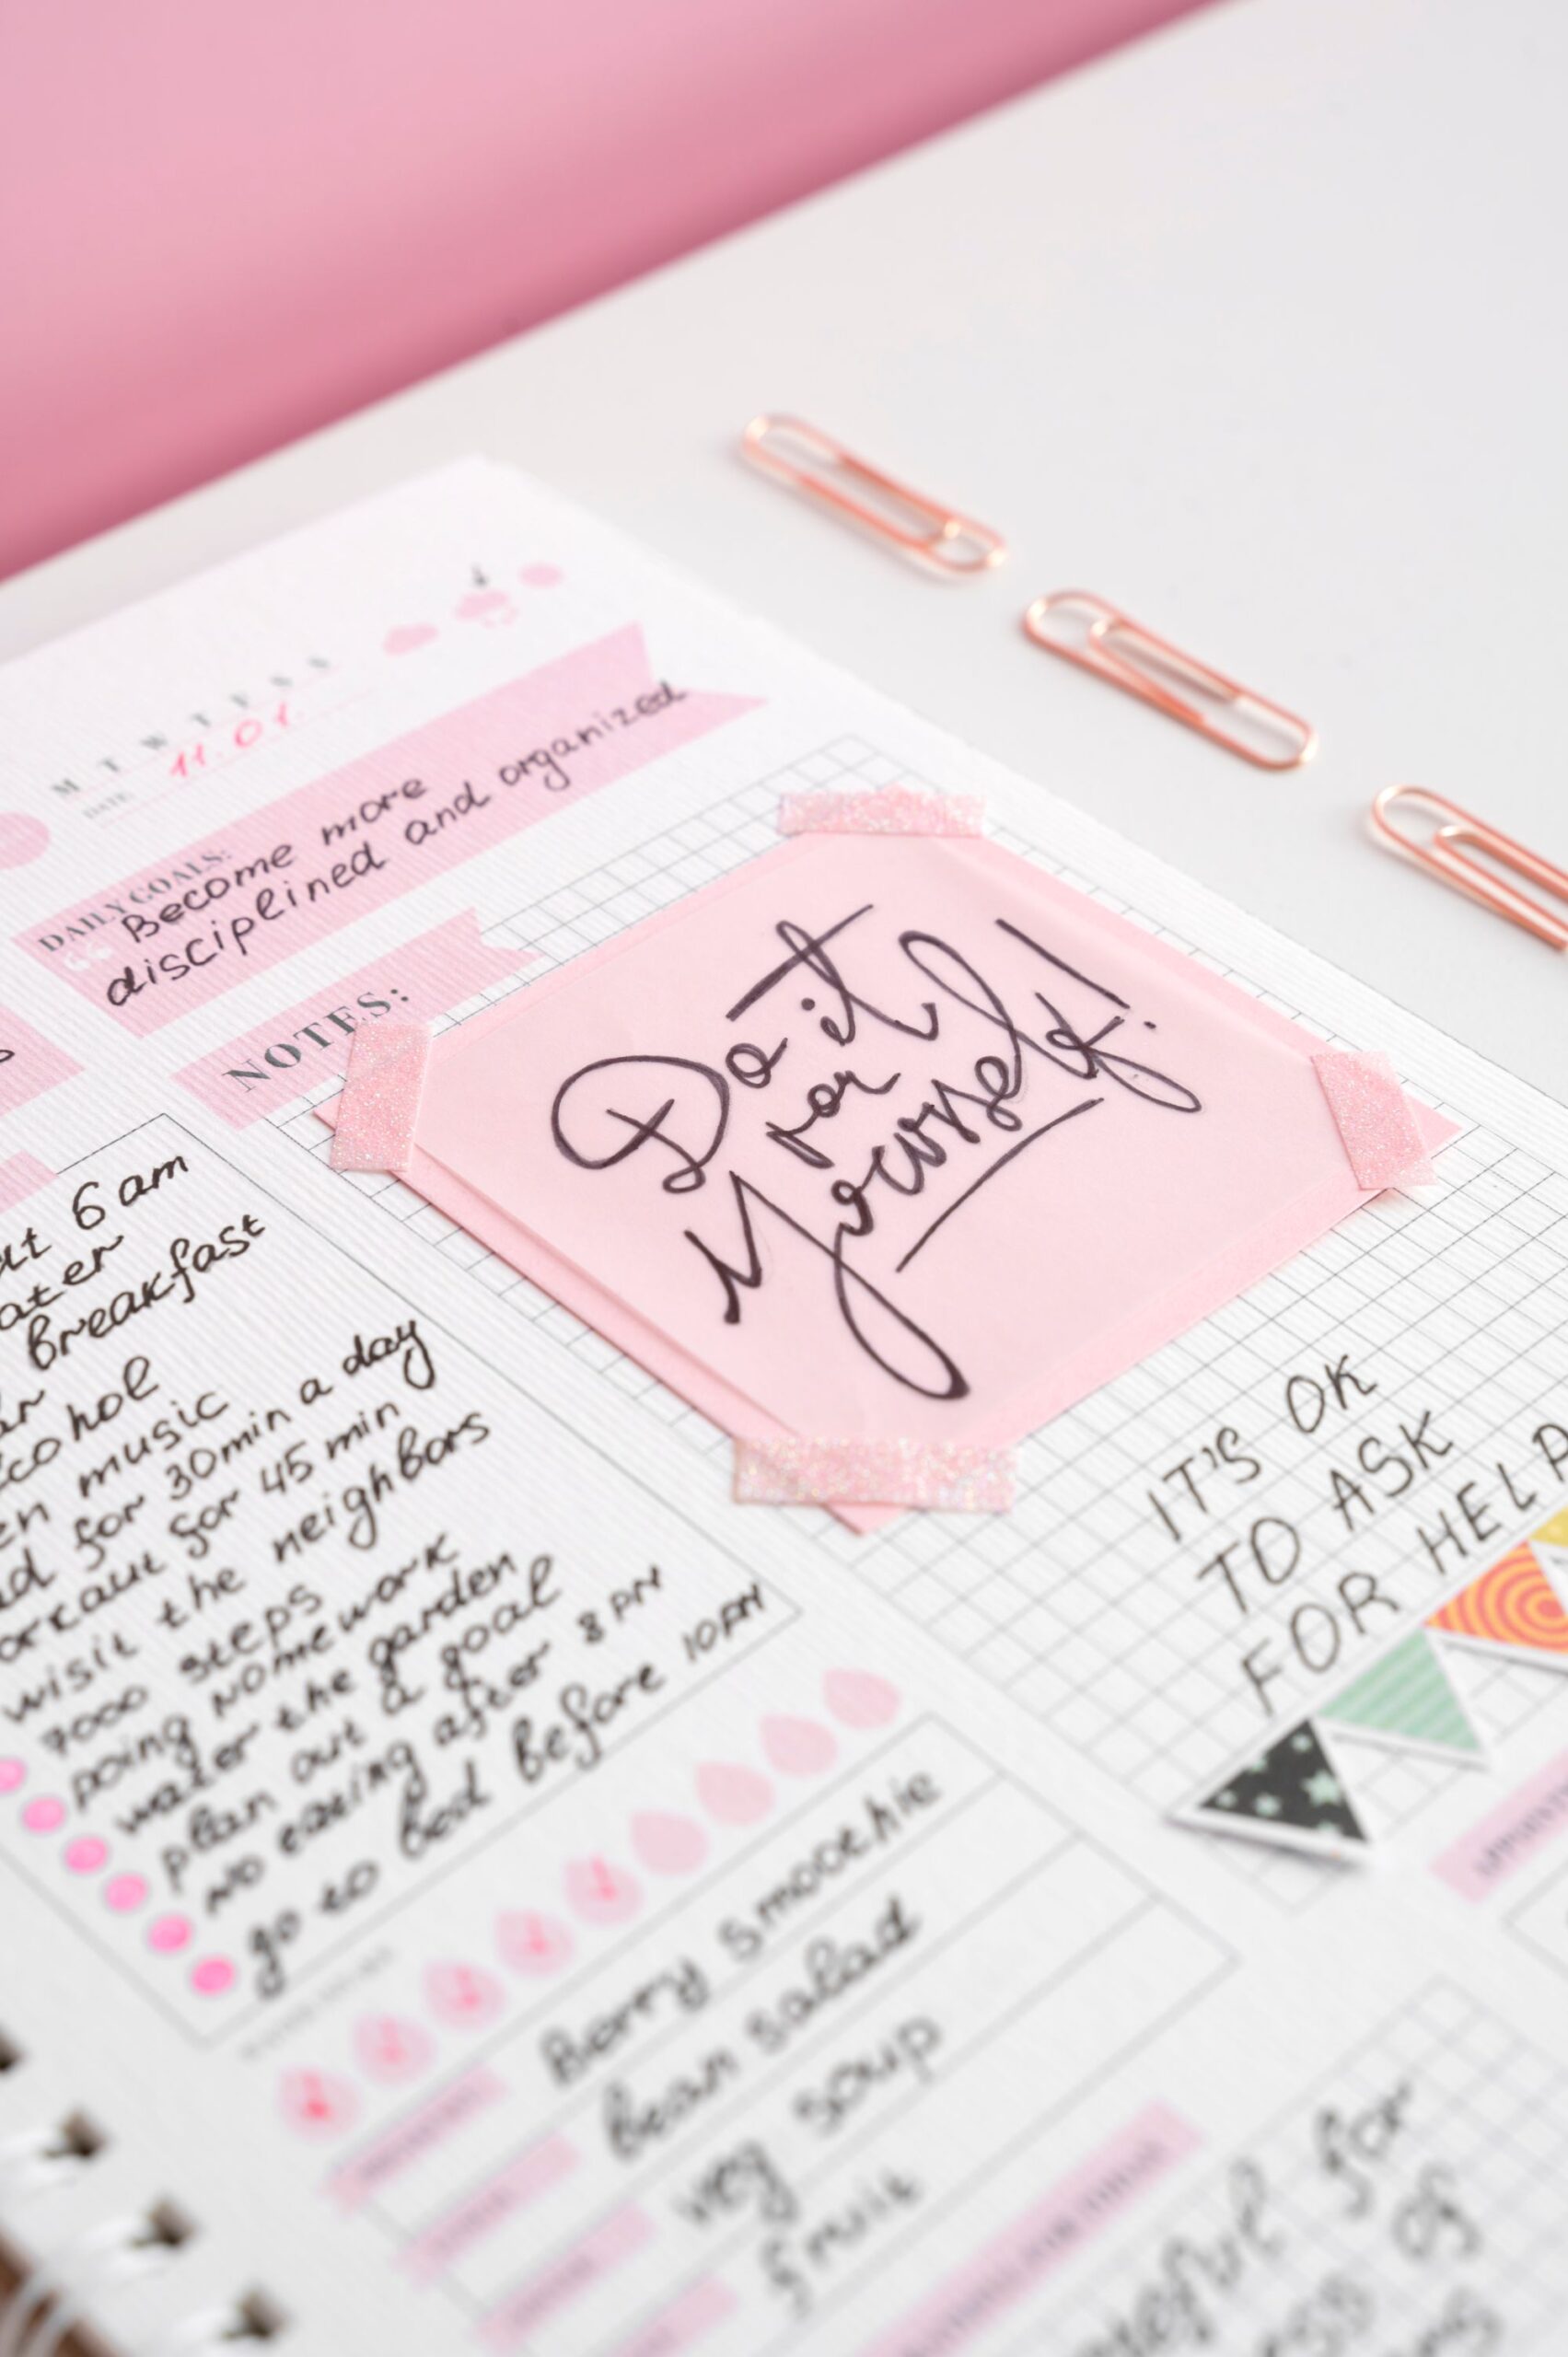 M T W T F S S
DATE 11.01.
DAILY GOALS:
Become more
disciplined and organized
NOTES:
Do it
for
Yourself!
at 6 am
breakfast
music
for 30min a day
for 45 min
wisit the neighbors
7000 steps
doing homework
water the garden
plan out a goal
no eating after 8 PM
go to bed before 10PM
IT'S OK
TO ASK
FOR HELP
Berry smoothie
bean salad
veg soup
fruit
for
of